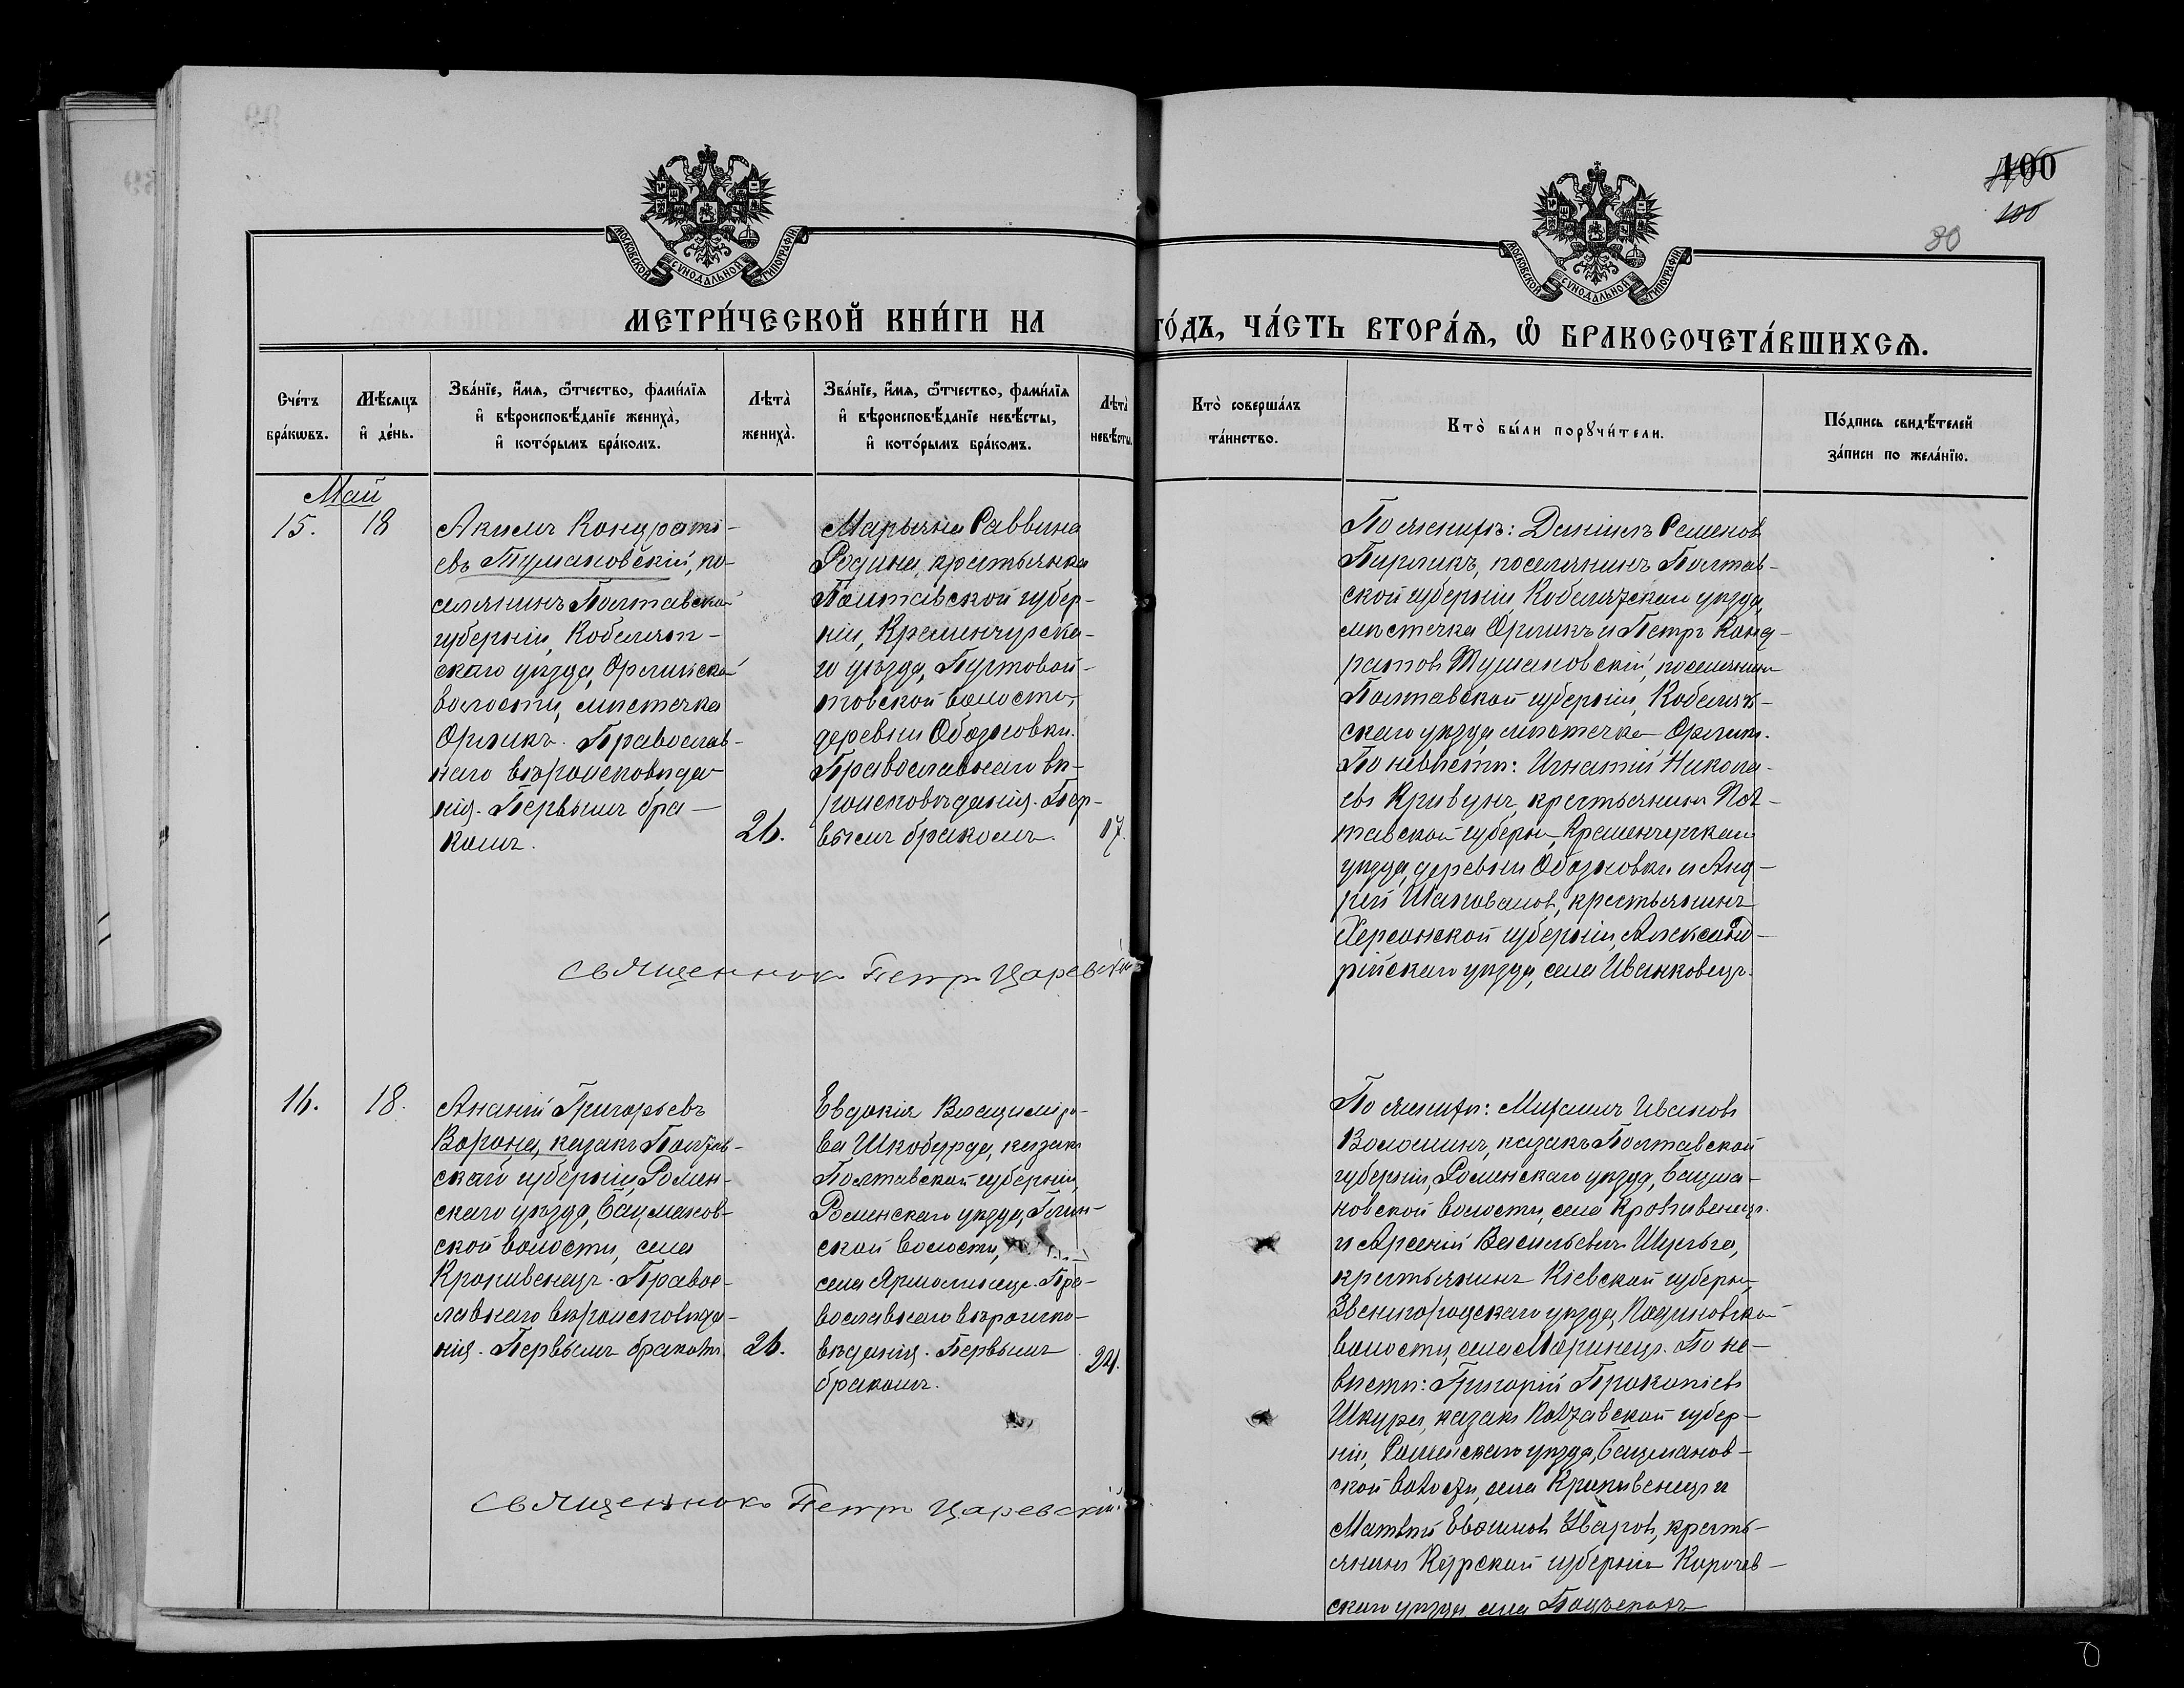 100
100
80
МОСКОВСКОЙ СѴНОДАЛЬНОЙ ТИПОГРАФІИ
МОСКОВСКОЙ СѴНОДАЛЬНОЙ ТИПОГРАФІИ
МЕТРИ́ЧЕСКОЙ КНИ́ГИ НА
ГО́ДЪ, ЧА́СТЬ ВТОРА́Я, Ѡ БРАКОСОЧЕТА́ВШИХСЯ.
Сче́тъ
бра́кѡвъ.
Мѣ́сяцъ
и де́нь.
Зва́нїе, и́мя, ѻ́тчество, фами́лїя
и вѣроисповѣ́данїе жениха̀,
и кото́рымъ бра́комъ.
Лѣта̀
жениха̀.
Зва́нїе, и́мя, ѻ́тчество, фами́лїя
и вѣроисповѣ́данїе невѣ́сты,
и кото́рымъ бра́комъ.
Лѣта̀
невѣ́сты.
Кто̀ соверша́лъ
та́инство.
Кто̀ бы́ли порꙋчи́тели.
По́дпись свидѣ́телей
за́писи по жела́нїю.
Май
15.
18
Акимъ Кондрать-
евъ Тумановскій, по-
селянинъ Полтавской
губерніи, Кобеляк-
скаго уѣзда, Орликской
волости, мѣстечка
Орликъ. Православ-
наго вѣроисповѣда-
нія. Первымъ бра-
комъ.
26.
Марьяна Саввина
Родина, крестьянка
Полтавской губер-
ніи, Кременчугска-
го уѣзда,
товской волости,
деревни Обозновки.
Православнаго вѣ-
роисповѣданія. Пер-
вымъ бракомъ.
17.
По женихѣ: Даніилъ Семеновъ
Пирликъ, поселянинъ Полтав-
ской губерніи, Кобелякскаго уѣзда,
мѣстечка Орликъ и Петръ Конд-
ратовъ Тумановскій, поселянинъ
Полтавской губерніи, Кобеляк-
скаго уѣзда мѣстечка Орликъ.
По невѣстѣ: Игнатій Никола-
евъ Кривунъ, крестьянинъ Пол-
тавской губерн., Кременчугскаго
уѣзда, деревни Обозновки и Анд-
рей Шаповаловъ, крестьянинъ
Херсонской губерніи, Александ-
рійскаго уѣзда, села Иванковецъ.
Священникъ Петръ Царевскій
16.
18.
Ананій Григорьевъ
Ворона, казакъ Полтав-
ской губерніи, Ромен-
скаго уѣзда, Бацманов-
ской волости, села
Кропивенецъ. Правос-
лавнаго вѣроисповѣда-
нія. Первымъ бракомъ.
26.
Евдокія Владиміро-
ва Шкобурда, казачк.
Полтавской губерніи,
Роменскаго уѣзда, Глин-
ской волости,
села Ярмолинецъ. Пра-
вославнаго вѣроиспо-
вѣданія. Первымъ
бракомъ.
24.
По женихѣ: Михаилъ Ивановъ
Волошинъ, казакъ Полтавской
губерніи, Роменскаго уѣзда, Бацма-
новской волости, села Кропивенецъ.
и Арсеній Васильевичъ Шульга,
крестьянинъ Кіевской губерн.,
Звенигородскаго уѣзда,
волости, села Моринецъ. По не-
вѣстѣ: Григорій Прокопіевъ
Шкура, казакъ Полтавской губер-
ніи, Роменскаго уѣзда, Бацманов-
ской волости, села Кропивенецъ и
Матвѣй Евфимовъ Уваровъ, кресть-
янинъ Курской губерніи Корочев-
скаго уѣзда села
Священникъ Петръ Царевскій.